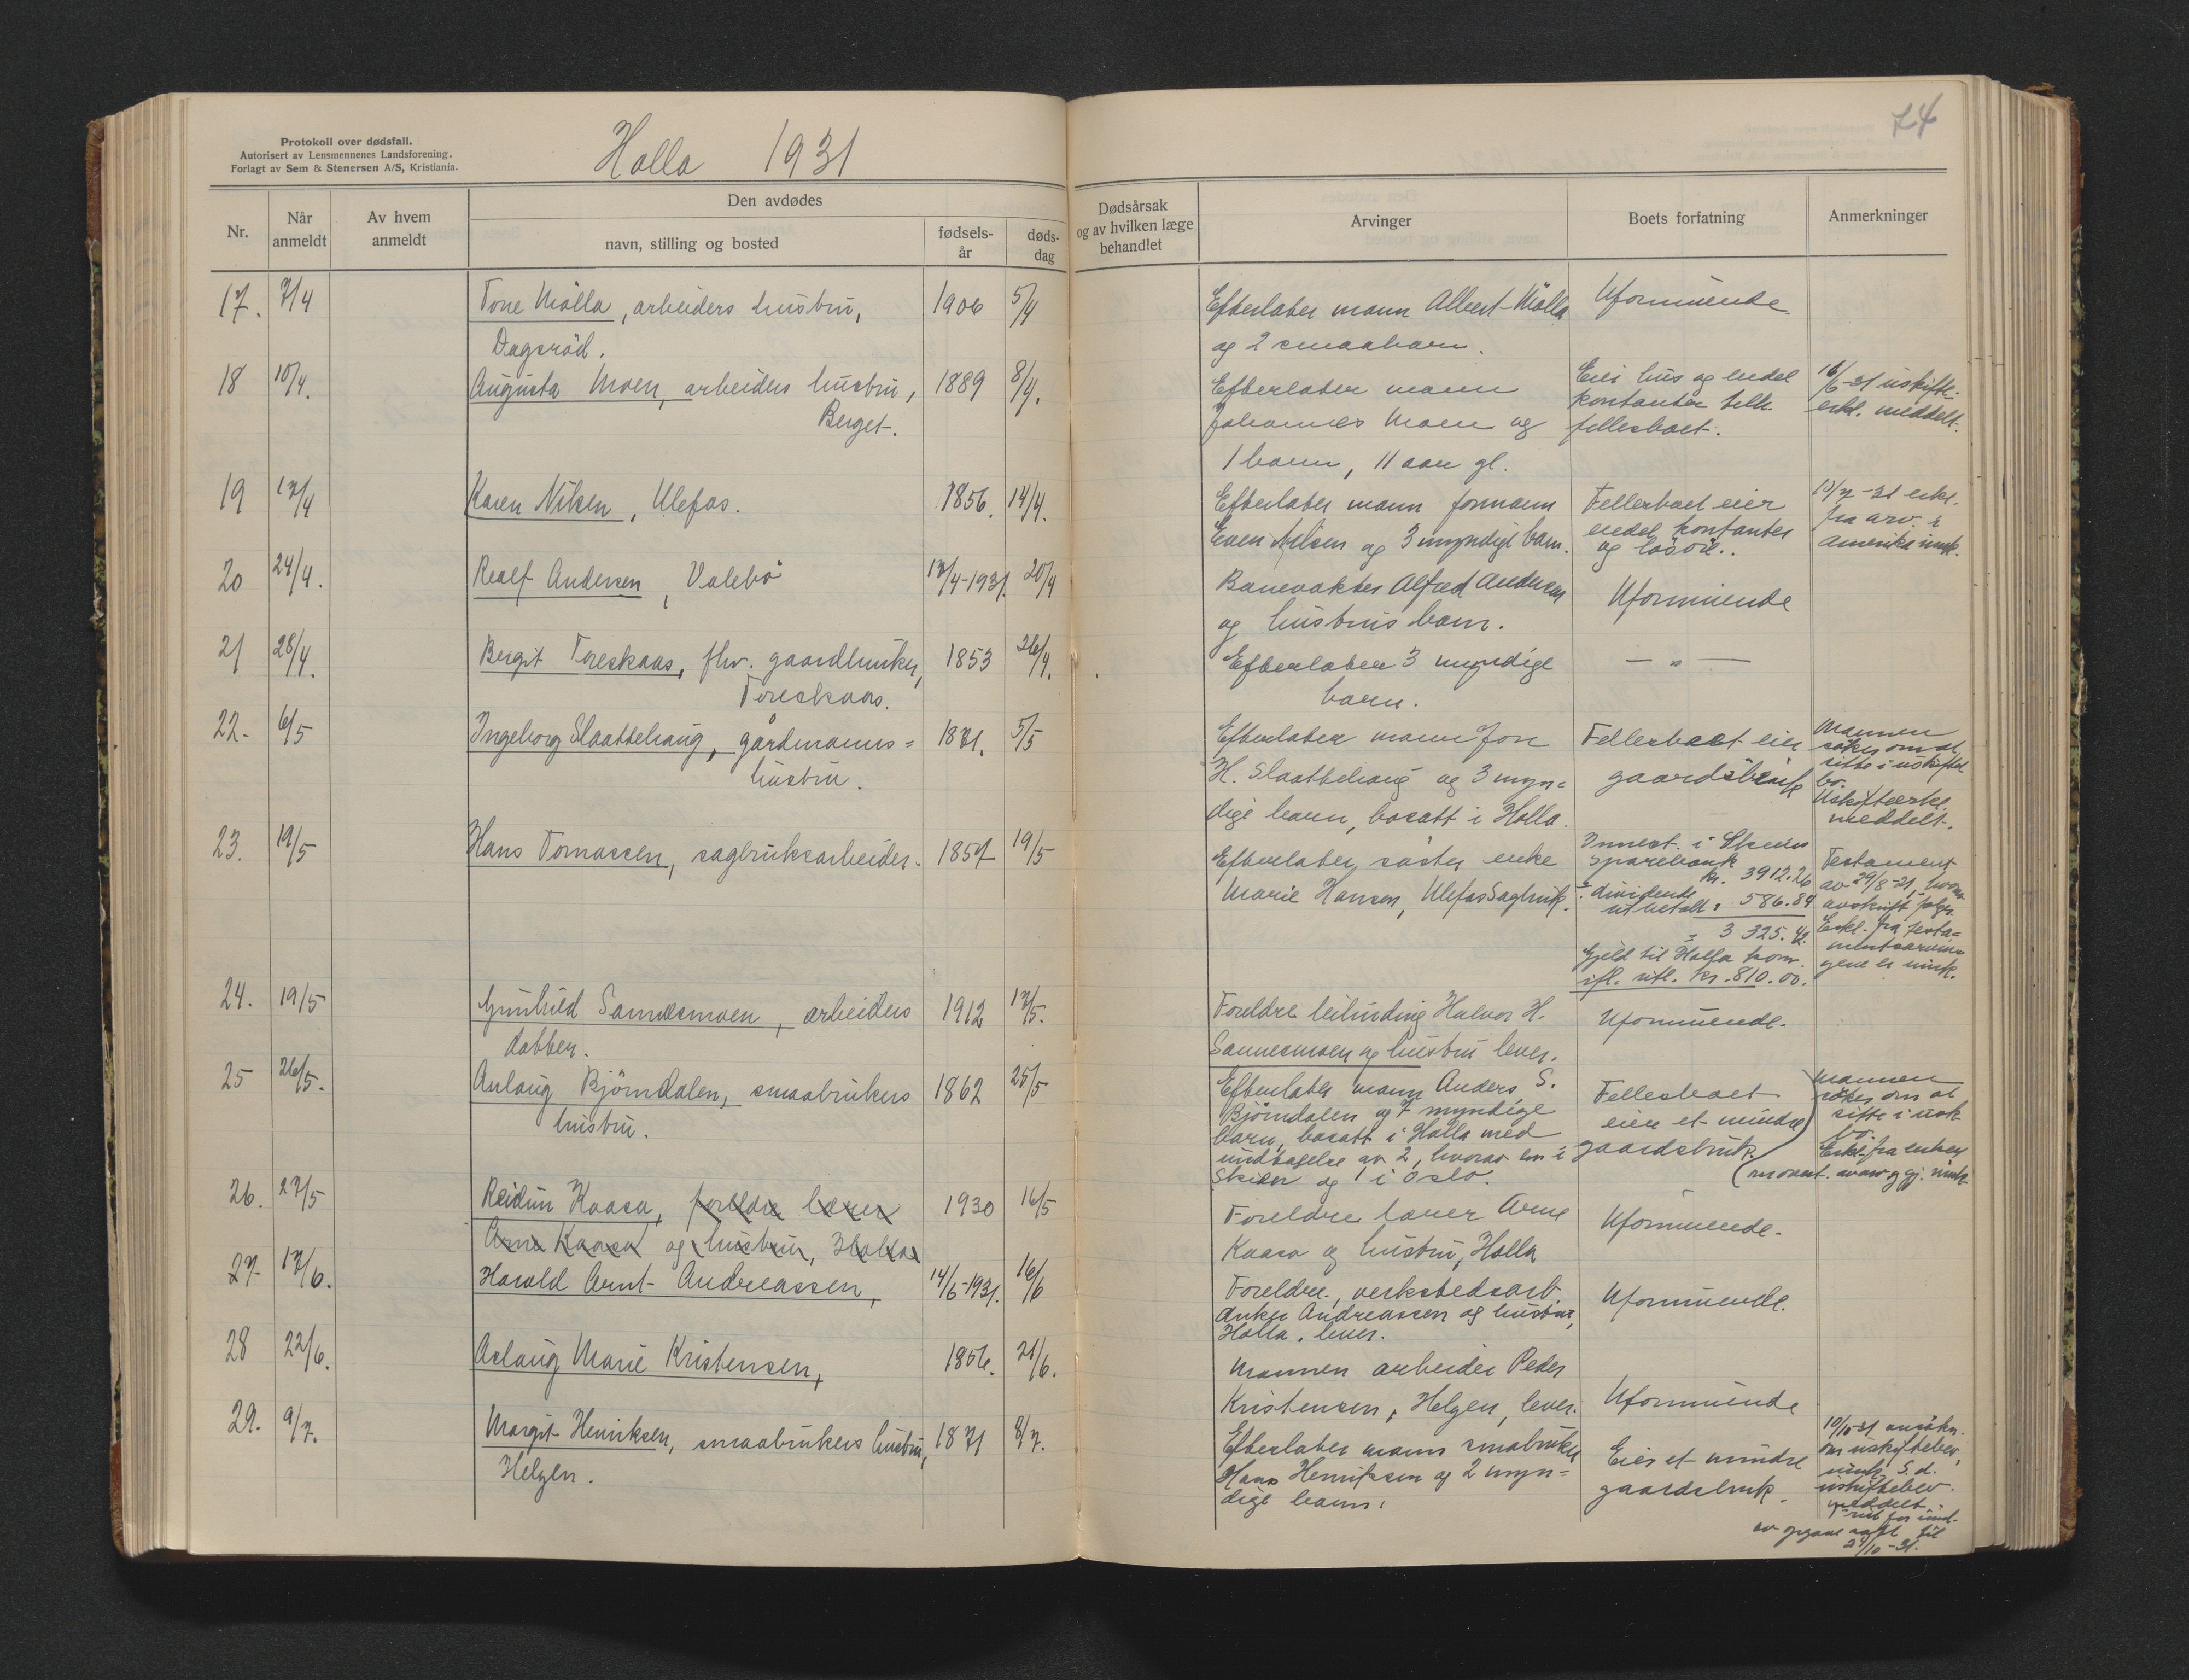 Protokoll over dødsfall.
Autorisert av Lensmennenes Landsforening.
Forlagt av Sem & Stenersen A/S, Kristiania.
Holla 1931
74
Nr.
Når
anmeldt
Av hvem
anmeldt
Den avdødes
navn, stilling og bosted
fødsels-
år
døds-
dag
Dødsårsak
og av hvilken læge
behandlet
Arvinger
Boets forfatning
Anmerkninger
17. 7/4 Tone Mölla, arbeiders hustru, 1906 5/4 Efterlater mann Albert Mölla Uformuende
Dagsröd. og 2 smaabarn.
18 10/4. Augusta Moen, arbeiders hustru, 1889 8/4. Efterlater mann Eier hus og endel 16/6-31 uskifte-
Berget. Johannes Moen og kontanter tilh. erkl. meddelt.
1 barn, 11 aar gl. fellesboet.
19 17/4 Karen Nilsen, Ulefos. 1856. 14/4. Efterlater mann formann Fellesboet eier 13/7-31 erkl.
Even Nilsen og 3 myndige barn. endel kontanter fra arv. i
og lösöre. Amerika innk.
20 24/4. Realf Andersen, Valebö 17/4-1931. 20/4 Banevokter Alfred Andersen Uformuende
og hustrus barn.
21 28/4. Bergit Toreskaas, fhv. gaardbruker, 1853 26/4. Efterlater 3 myndige — " —
Toreskaas. barn.
22. 6/5 Ingeborg Slaattehaug, gårdmanns= 1871. 5/5 Efterlater mann Jon Fellesboet eier Mannen
hustru. H. Slaattehaug og 3 myn= gaardsbruk söker om at
dige barn, bosatt i Holla. sitte i uskiftet
bo.
Uskifteerkl.
meddelt.
23. 19/5 Hans Tomassen, sagbruksarbeider. 1857 19/5 Efterlater söster enke Innest. i Skiens Testament
Marie Hansen, Ulefos Sagbruk. Sparebank kr. 3912.26 av 29/8-21, hvorav
÷ dividende avskrift fölger.
utbetalt " 586.84 Erkl. fra testa=
= 3 325.42. mentsarvin=
Gjeld til Holla kom. gene er innk.
ifl. utl. kr. 810.00.
24. 19/5 Gunhild Sannesmoen, arbeiders 1912 17/5. Foreldre leilending Halvor H. Uformuende.
datter. Sannesmoen og hustru lever.
25 26/5. Anlaug Björndalen, smaabrukers 1862 25/5 Efterlater mann Anders S. Fellesboet Mannen
hustru. Björndalen og 7 myndige eier et mindre söker om at
barn, bosatt i Holla med gaardsbruk. sitte i usk.
undtagelse av 2, hvorav en i bo.
Skien og 1 i Oslo. Erkl. fra enken
26. 27/5 Reidun Kaasa, foreldre lærer 1930 16/5 Foreldre lærer Arne Uformuende.
Arne Kaasa og hustru, Holla Kaasa og hustru, Holla
27. 17/6. Harald Arnt Andreassen, 14/6-1931. 16/6 Foreldre, verkstedsarb. Uformuende.
Anker Andreassen og hustru,
Holla, lever.
28 22/6. Aslaug Marie Kristensen, 1856. 21/6. Mannen arbeider Peder Uformuende
Kristensen, Helgen, lever.
29. 9/7. Margit Henriksen, smaabrukers hustru, 1871 8/7. Efterlater mann småbruker Eier et mindre 10/10-31 ansökn.
Helgen. Hans Henriksen og 2 myn= gaardsbruk. om uskiftebev.
dige barn. innk. S.d.
uskiftebev.
meddelt.
Frist for innd.
til
24/10-31.